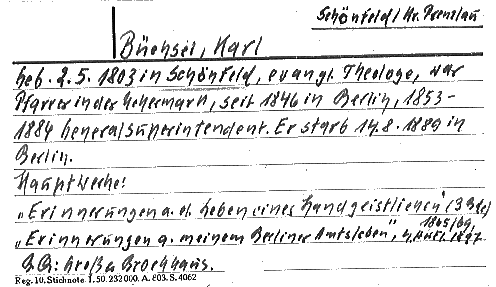 Schönfeld/Kr. Prenzlau
Büchsel, Karl
Geb. 2.5. 1803 in Schönfeld, evangl. Theologe, war
Pfarrer in der Uckermark, seit 1846 in Berlin, 1853-
1884 Generalsuperintendent. Er starb 14.8.1889 in
Berlin.
Hauptwerke:
„Erinnerungen a. d. Leben eines Landgeistlichen" (3 Bde)
1865/69,
„Erinnerungen a. meinem Berliner Amtsleben", 4. Aufl. 1897.
B.Q.: Große Brockhaus.
Reg. 10. Stichnote 1. 50. 232 000. A. 803. S. 4062